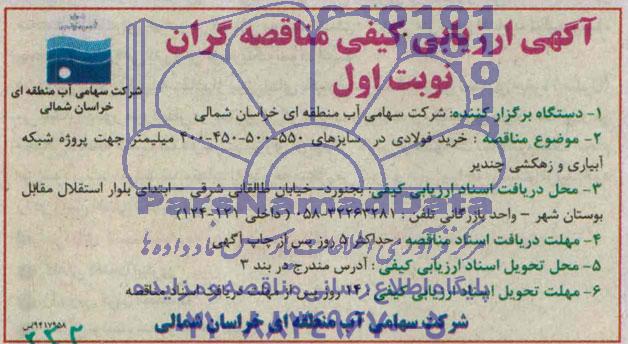 آگهی ارزیابی کیفی مناقصه گران
نوبت اول
شرکت سهامی آب منطقه ای
خراسان شمالی
۱- دستگاه برگزار کننده: شرکت سهامی آب منطقه ای خراسان شمالی
۲- موضوع مناقصه : خرید فولادی در سایزهای ۵۵۰-۵۰۰-۴۵۰-۴۰۰ میلیمتر جهت پروژه شبکه
آبیاری و زهکشی چندیر
۳- محل دریافت اسناد ارزیابی کیفی: بجنورد- خیابان طالقانی شرقی - ابتدای بلوار استقلال مقابل
بوستان شهر - واحد بازرگانی تلفن : ۳۲۲۶۳۲۸۱-۰۵۸ ( داخلی ۱۲۱-۱۲۴)
۴- مهلت دریافت اسناد مناقصه : حداکثر ۵ روز پس از چاپ آگهی
۵- محل تحویل اسناد ارزیابی کیفی : آدرس مندرج در بند ۳
۶- مهلت تحویل اسناد ارزیابی کیفی : ۱۴ روز پس از مهلت دریافت اسناد مناقصه
شرکت سهامی آب منطقه ای خراسان شمالی
۹۴۱۷۹۵۸/س
ParsNamadData
مرکز فرآوری اطلاعات پارس نماد داده ها
پایگاه اطلاع رسانی مناقصه و مزایده